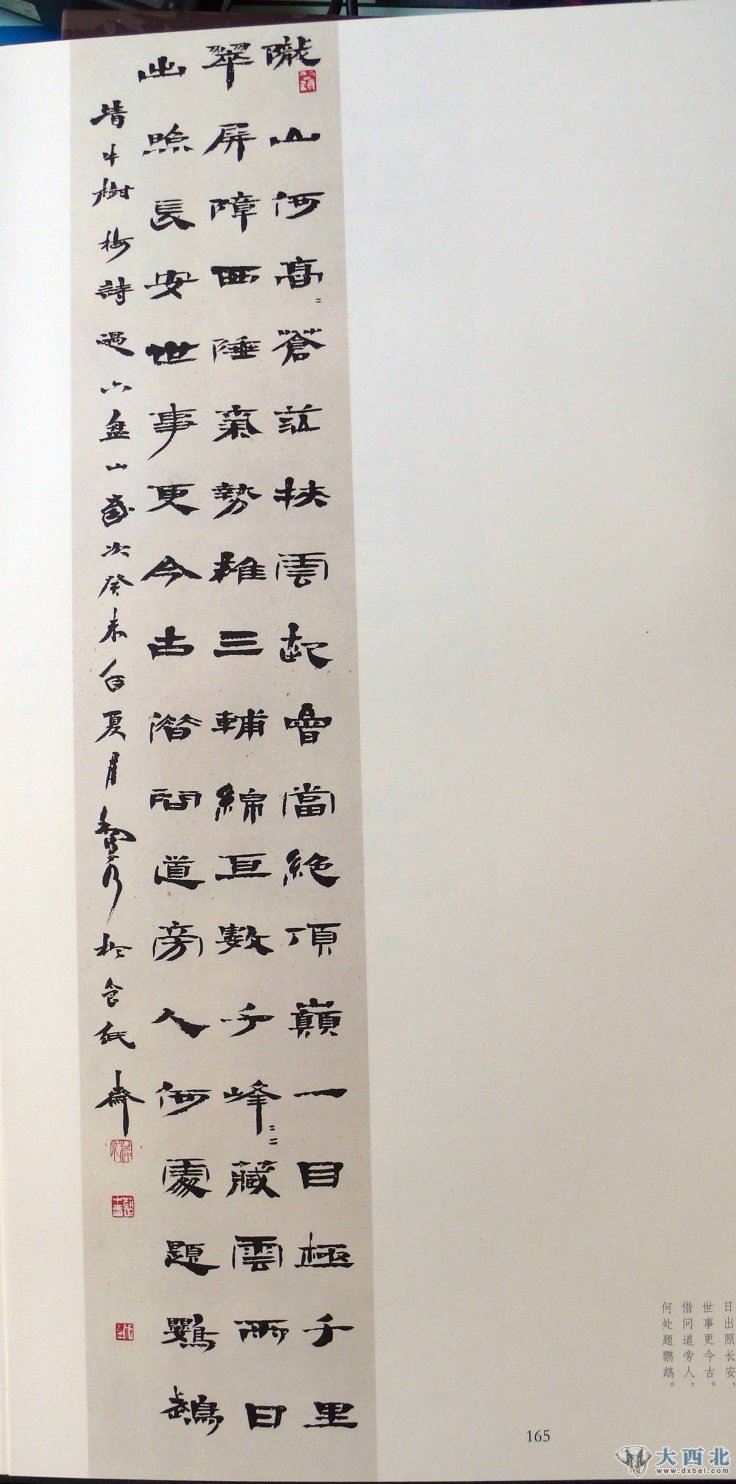 隴山何高〻蒼茫扶雲起會當絕頂巔一目極千里
翠屏障西陲氣勢雄三輔綿亘數千峰〻〻藏雲雨日
出照長安世事更今古借問道旁人何處題鸚鵡
清牛樹梅詩過六盤山歲次癸未年夏月於紙齋
日出照长安，
世事更今古。
借问道旁人，
何处题鹦鹉。
165
大西北
www.dxbei.com